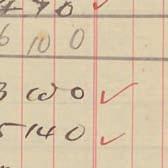 6 10 0
3 10 0
5 14 0